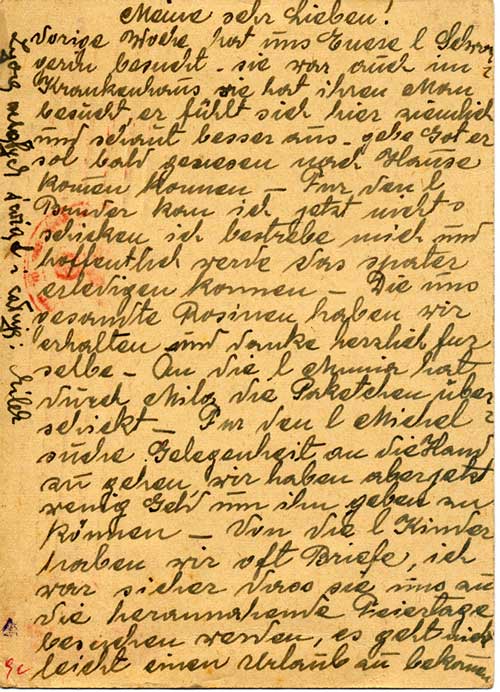 Meine sehr Lieben!
Vorige Woche hat uns Euere l Schwä
gerin besucht - sie war auch im
Krankenhaus sie hat ihren Man
besucht, er fühlt sich hier ziemlich
und schaut besser aus - gebe Got er
sol bald genesen nach Hause
komen konnen - Fur den l
Bruder kan ich jetzt nichts
schicken ich bestrebe mich und
hoffentlich werde das spater
erledigen konnen - Die uns
gesandte Rosinen haben wir
erhalten und danke herzlich fur
selbe - An die l hat
durch Milo die Paketchen über
schickt - Fur den l Michel
suche Gelegenheit an die Hand
zu gehen, wir haben aber jetzt
wenig Geld um ihn geben zu
können - Von die l Kinder
haben wir oft Briefe, ich
war sicher dass sie uns zu
die herannahende Feiertage
besuchen werden, es geht nicht
leicht einen Urlaub zu bekomen